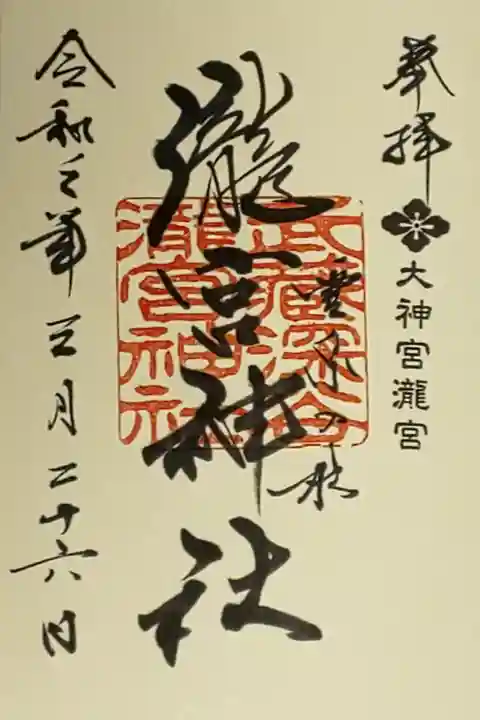 奉拝
大神宮瀧宮
霊泉の杜
武蔵深谷
瀧宮神社
瀧宮神社
令和三年三月二十六日